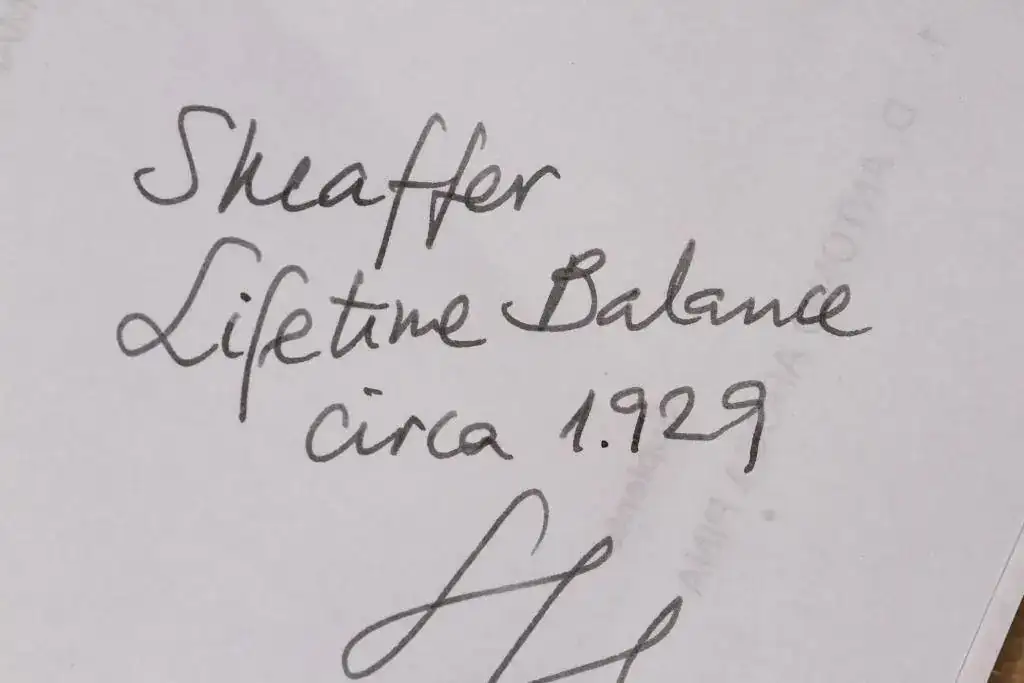 Sheaffer
Lifetime Balance
circa 1.929